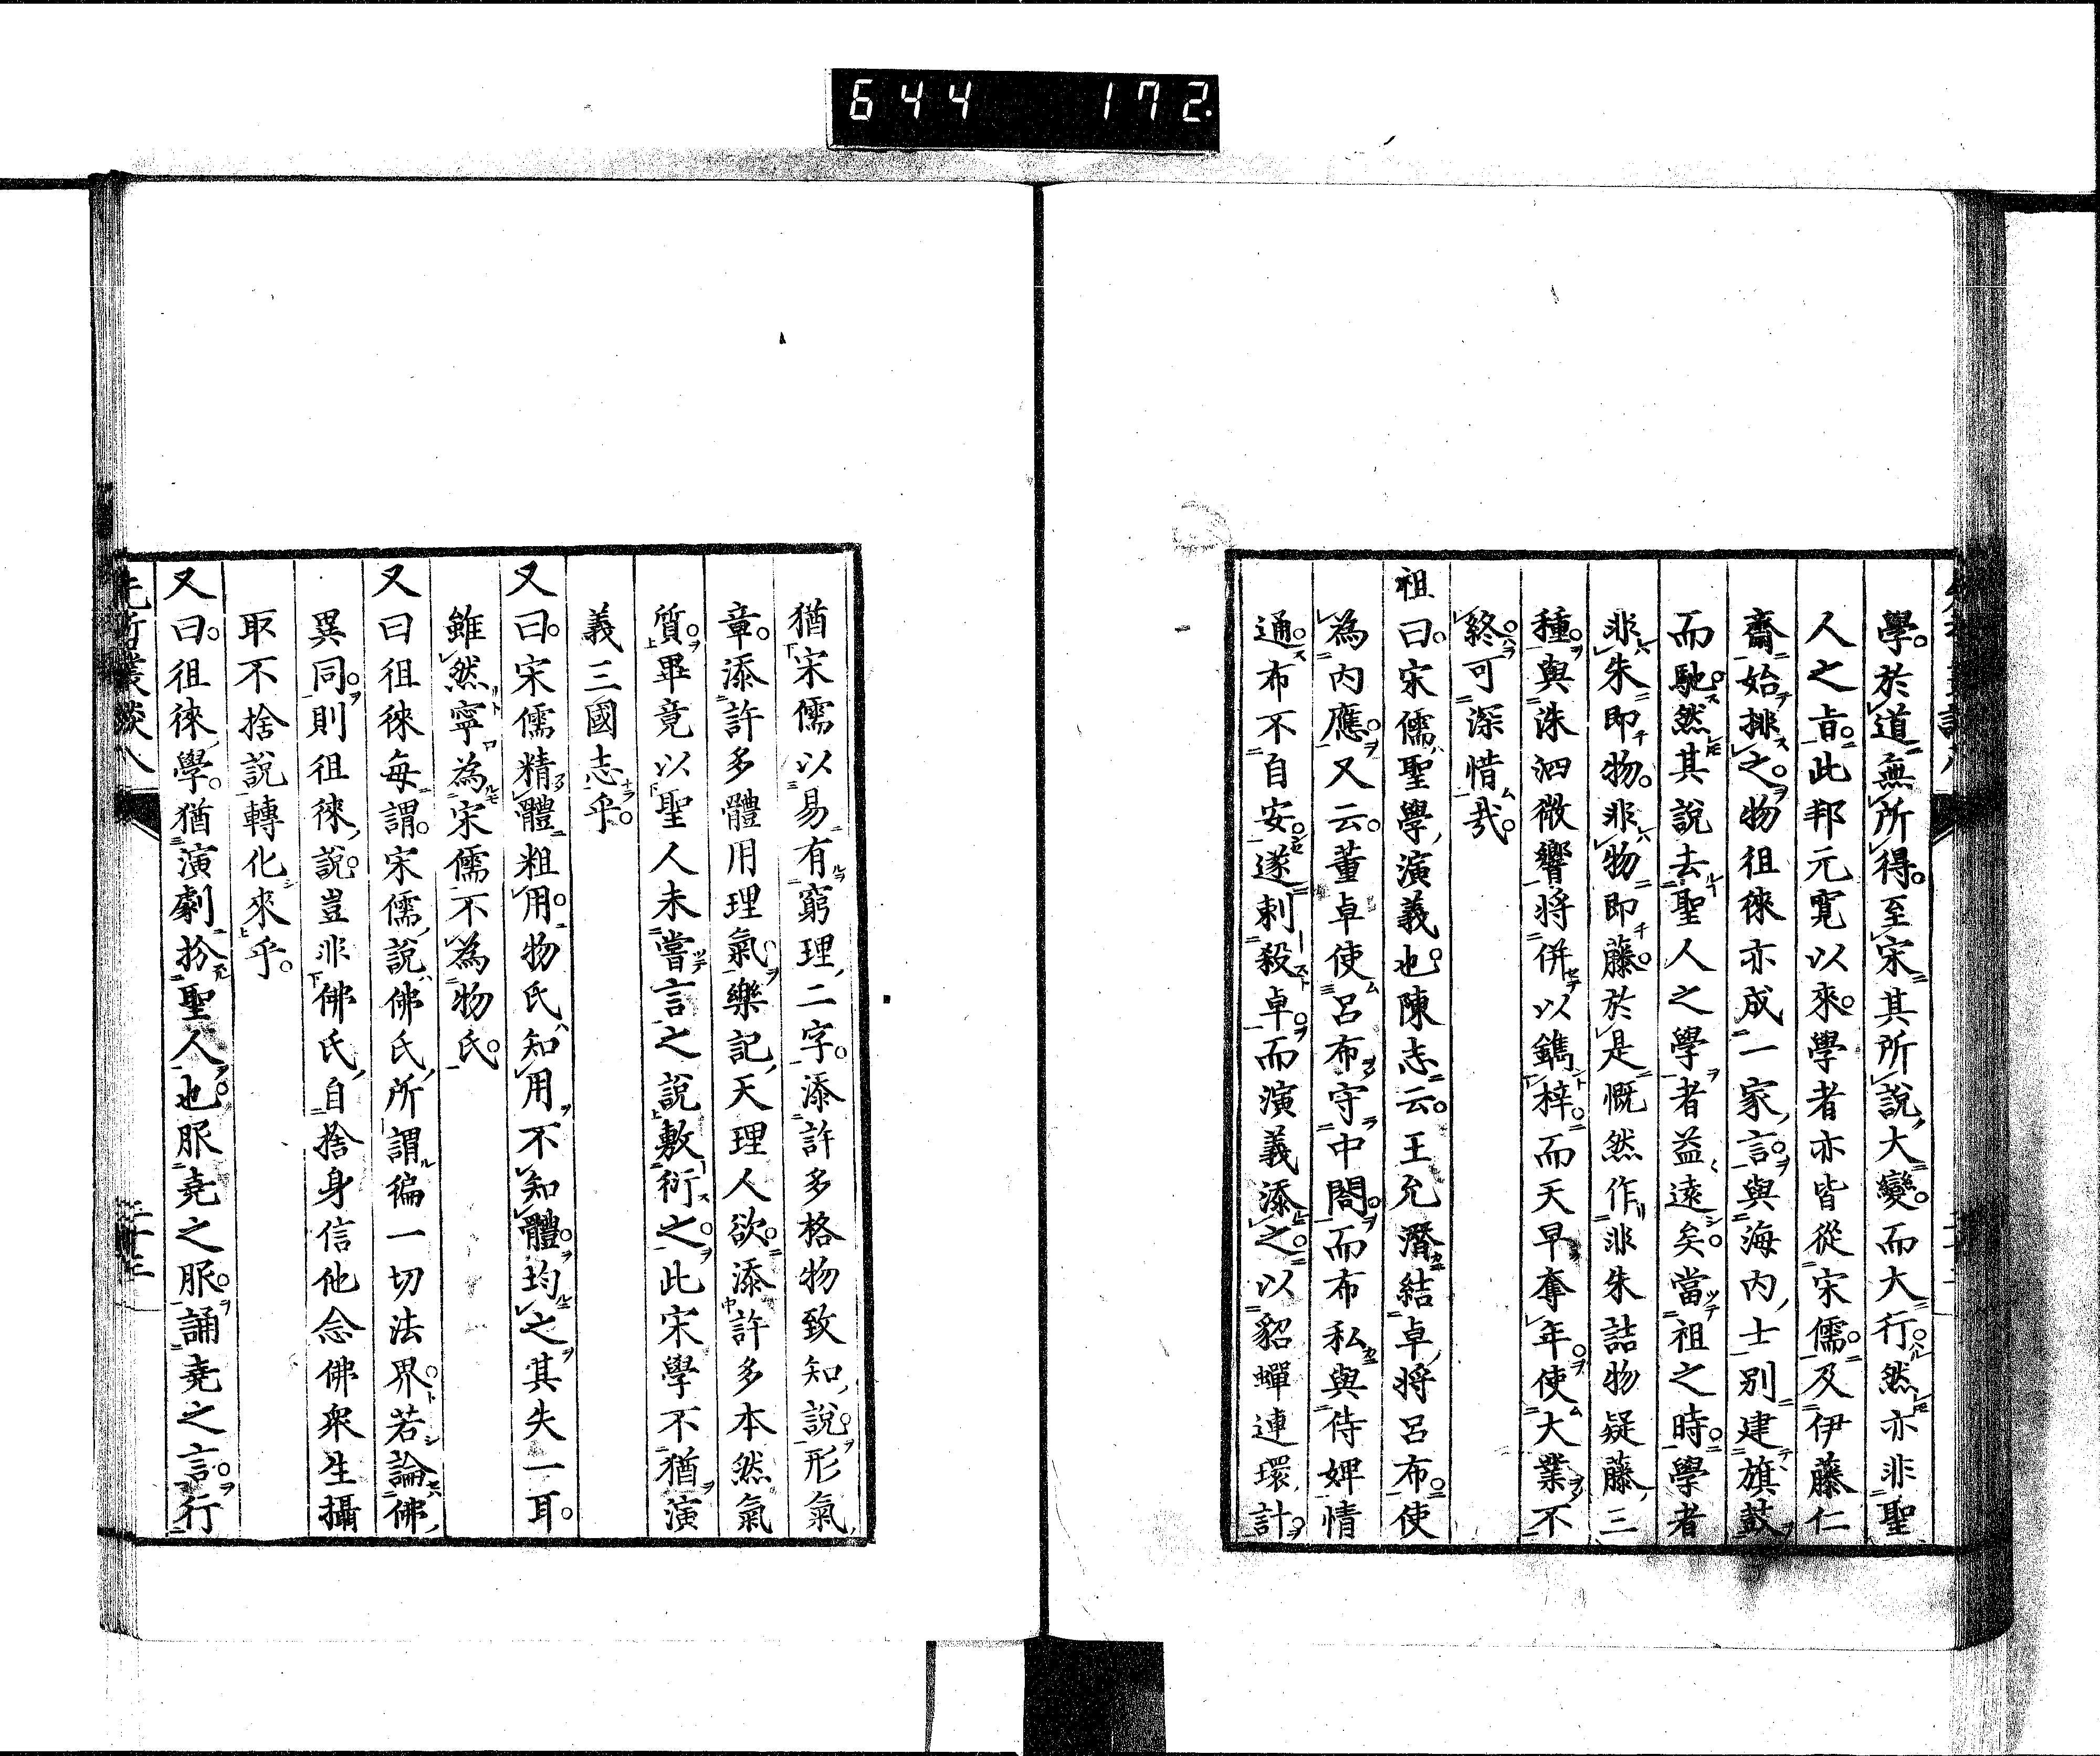 644 172.
學。於道無所得。至宋其所說大變。而大行。然亦非聖
人之旨。此邦元寬以來。學者亦皆從宋儒。及伊藤仁
齋始排之。物徂徠亦成一家言。與海內士別建旗鼓
而馳。然其說去聖人之學者益遠矣。當祖之時。學者
非朱即物。非物即藤。於是慨然作非朱詰物疑藤三
種。與洙泗微響將併以鐫梓。而天早奪年。使大業不
終。可深惜哉。
祖曰。宋儒聖學演義也。陳志云。王允潛結卓將呂布。使
為內應。又云。董卓使呂布守中閤。而布私與侍婢情
通。布不自安。遂刺殺卓。而演義添之。以貂蟬連環計。
猶宋儒以易有窮理二字。添許多格物致知說。形氣
章。添許多體用理氣。樂記天理人欲。添許多本然氣
質。畢竟以聖人未嘗言之說敷衍之。此宋學不猶演
義三國志乎。
又曰。宋儒精體粗用。物氏知用不知體。均之其失一耳。
雖然寧為宋儒不為物氏。
又曰徂徠每謂。宋儒說佛氏所謂徧一切法界。若論佛
異同。則徂徠說。豈非佛氏自捨身信他念佛衆生攝
取不捨說轉化來乎。
又曰。徂徠學。猶演劇扮聖人也。服堯之服。誦堯之言。行
先哲叢談八